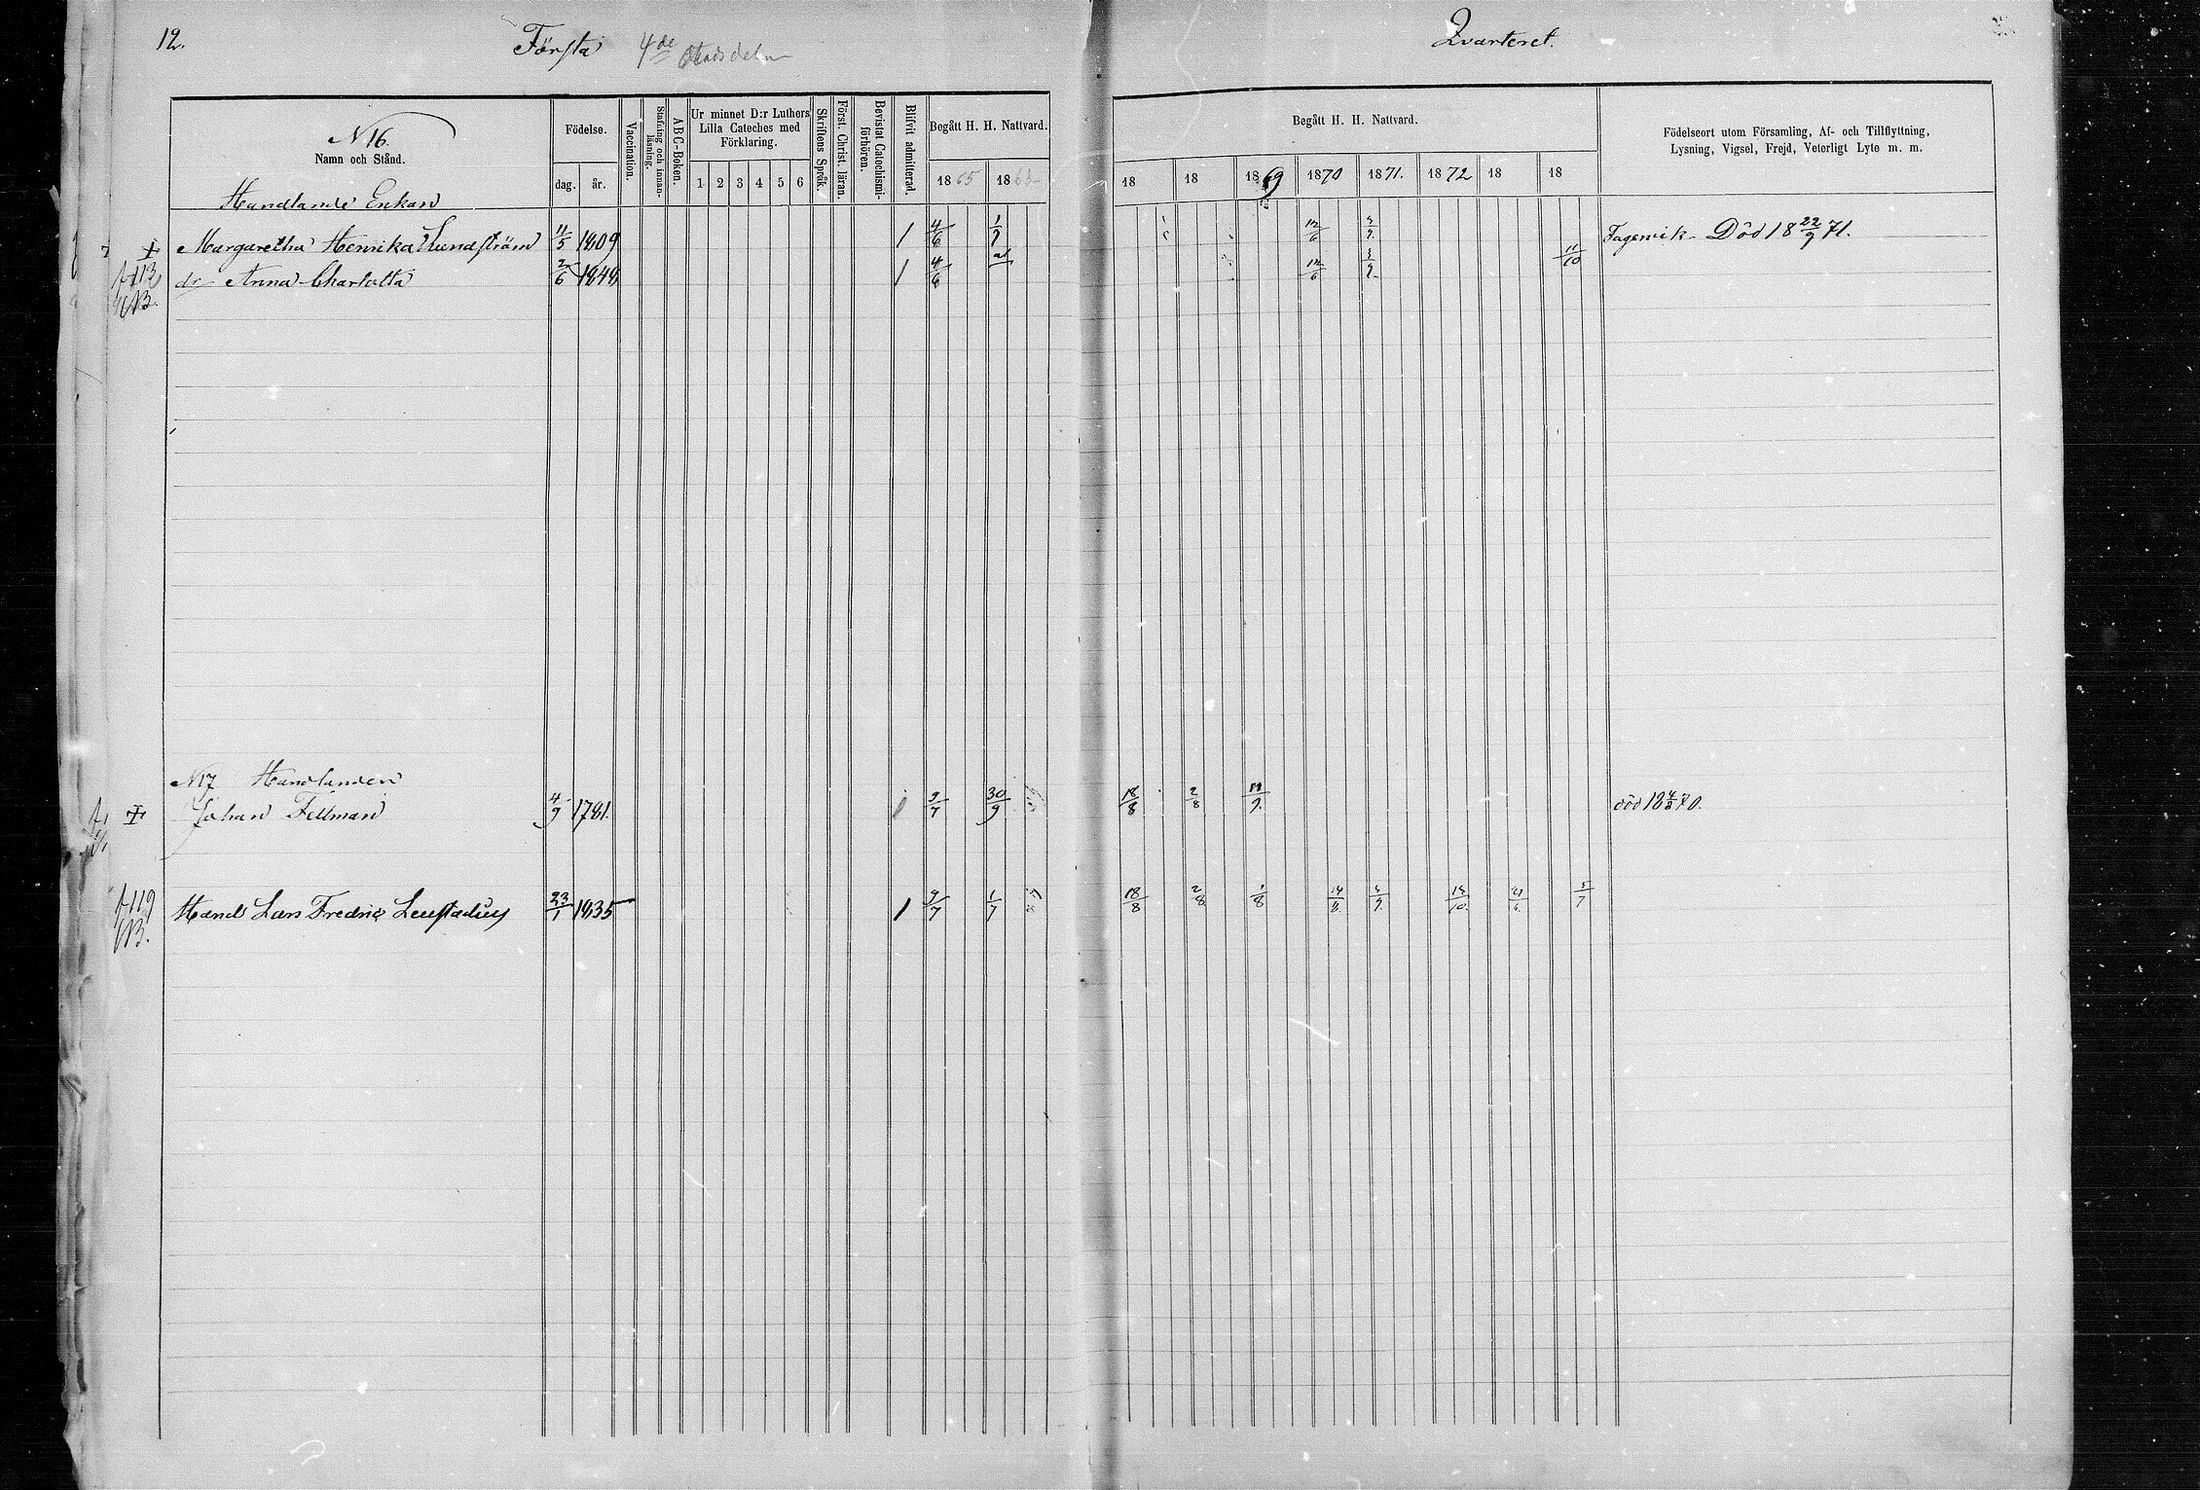 12.
Första 4de
Qvarteret.
N 16.
Namn och Stånd.
Födelse.
dag. år.
Vaccination.
Stafning och innan-läsning.
ABC-Boken.
Ur minnet D:r Luthers
Lilla Cateches med
Förklaring.
1 2 3 4 5 6
Skriftens Språk.
Först. Christ. läran.
Bevistat Catechismi-förhören.
Blifvit admitterad.
Begått H. H. Nattvard.
1865 18
Begått H. H. Nattvard.
18 18 1869 1870 1871. 1872 18 18
Födelseort utom Församling, Af- och Tillflyttning,
Lysning, Vigsel, Frejd, Veterligt Lyte m. m.
Handlande Enkan
Margaretha Henrika Lundström 11/5 1809 1 4/6 1/7 12/6 Fagervik - Död 18 22/9 71.
f 113 dr Anna Charlotta 2/6 1848 1 4/6 12/6 11/10
N 17 Handlanden
Johan Fellman 4/9 1781. 1 9/7 30/9 18/8 2/8 död 18 4/8 70.
f 119 Hand Lars Fredric 23/1 1835 1 9/7 1/7 18/8 2/8 1/8 5/7